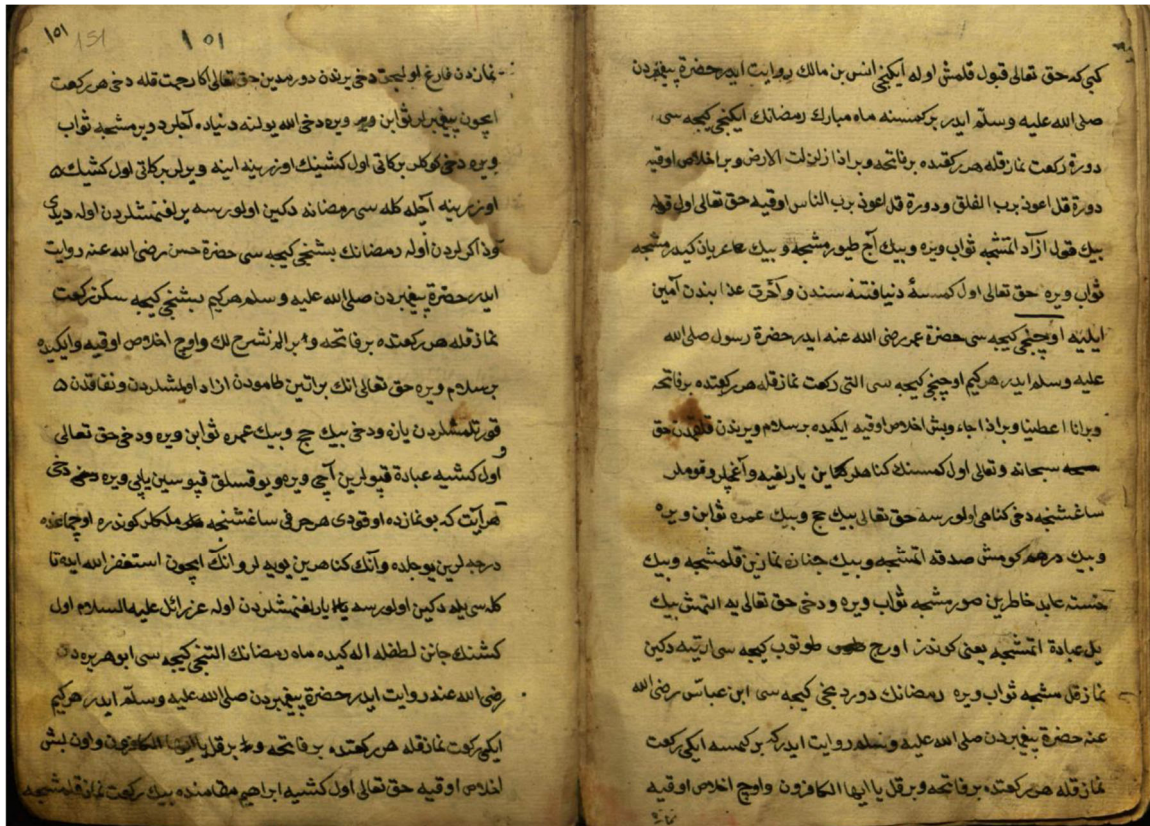 كبى كه حق تعالى قبول قلمش اوله ايكنجى انس بن مالك روايت ايدر حضرة پيغمبردن
صلى الله عليه وسلم ايدر بر كمسنه ماه مبارك رمضانك ايكنجى كيجه سى
دورة ركعت نماز قله هر ركعتده بر فاتحه وبر اذا زلزلت الارض وبر اخلاص اوقيه
دورة قل اعوذ برب الفلق ودورة قل اعوذ برب الناس اوقيه حق تعالى اول قوله
بيك قول ازآد اتمشجه ثواب ويره وبيك آج طيورمشجه وبيك عريان كيدرمشجه
ثواب ويره حق تعالى اول كمسۀ دنيا فتنه سندن وآخرت عذابندن آمين
ايليه اوچنجى كيجه سى حضرة عمر رضى الله عنه ايدر حضرة رسول صلى الله
عليه وسلم ايدر هر كيم اوچنجى كيجه سى التى ركعت نماز قله هر ركعتده بر فاتحه
وبر انا اعطينا وبر اذا جاء وبش اخلاص اوقيه ايكيده بر سلام ويريندن حق
سبحانه وتعالى اول كمسنك كناهلر يارلغيه وآغچلر وقوملر
ساغشنجه دخى كناهى اولورسه حق تعالى بيك حج وبيك عمره ثوابن ويره
وبيك درهم كومش صدقه اتمشجه وبيك جنازه نمازين قلمشجه وبيك
خسته خاطرين صورمشجه ثواب ويره ودخى حق تعالى يه التمش بيك
يل عبادة اتمشجه يعنى كوندز اورج طوتوب كيجه سى ايرتيه دكين
نماز قلمشجه ثواب ويره رمضانك دوردنجى كيجه سى ابن عباس رضى الله
عنه حضرة پيغمبردن صلى الله عليه وسلم روايت ايدر كه بر كمسه ايكى ركعت
نماز قله هر ركعتده بر فاتحه وبر قل يا ايها الكافرون واوچ اخلاص اوقيه
١٥١ 151 ١٥١
نمازدن فارغ اوليجق دخى يرندن دورمدين حق تعالى اكا رحمت قله دخى هر ركعت
ايچون پيغمبرلر ثوابن ويره دخى الله يولنه دنياده آچلرد ويرمشجه ثواب
ويره دخى كوكلر بركاتى اول كشينك اوزرينه اينه ويرلر بركاتى اول كشينك
اوزرينه آچله كله سى رمضانه دكين اولورسه يرلغنمشلردن اوله ديدى
اوله رمضانك بشنجى كيجه سى حضرة حسن رضى الله عنه روايت
ايدر حضرة پيغمبردن صلى الله عليه وسلم هر كيم بشنجى كيجه سكز ركعت
نماز قله هر ركعتده بر فاتحه وبر الم نشرح لك واوچ اخلاص اوقيه وايكيده
بر سلام ويره حق تعالى انك براتين طامودن ازاد اولمشلردن ونفاقدن
قورتلمشلردن يازه ودخى بيك حج وبيك عمره ثوابن ويره ودخى حق تعالى
اول كشيه عبادة قپولرين آچى ويره ويوقسلق قپوسين ياپى ويره دخى
هر آيت كه بو نمازده اوقودى هر حرفى ساغشنجه ملكلر كوندره اوچماغده
درجه لرين يوجلده وآنك كناهرين يويه لر وانك ايچون استغفر الله ايده تا
كله سى يله دكين اولورسه يارلغنمشلردن اوله عزرائل عليه السلام اول
كشنك جانن لطفله اله كيده ماه رمضانك التنجى كيجه سى ابو هريره دن
رضى الله عنه روايت ايدر حضرة پيغمبردن صلى الله عليه وسلم ايدر هر كيم
ايكى ركعت نماز قله هر ركعتده بر فاتحه بر قل يا ايها الكافرون واون بش
اخلاص اوقيه حق تعالى اول كشيه ابراهيم مقامنده بيك ركعت نماز قلمشجه